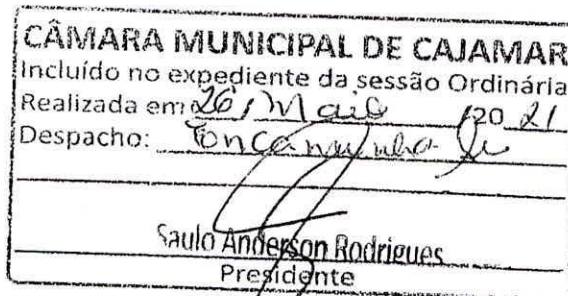 CÂMARA MUNICIPAL DE CAJAMAR
Incluído no expediente da sessão Ordinária
Realizada em: 26 / Maio /20 21
Despacho: Encaminha-se
Saulo Anderson Rodrigues
Presidente